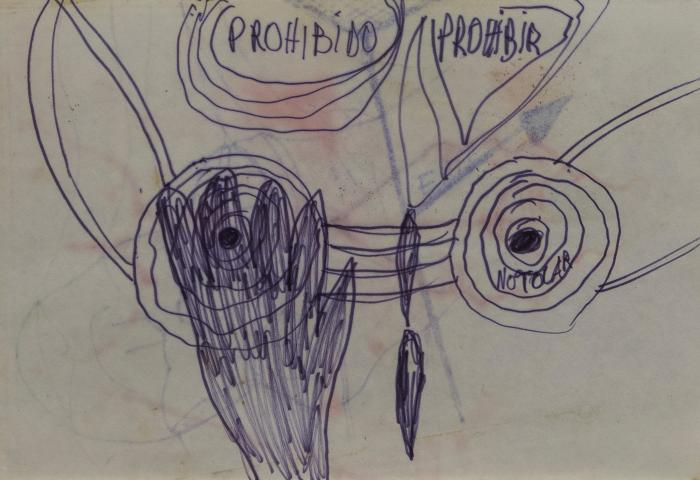 PROHIBIDO
PROHIBIR
NO TOCAR